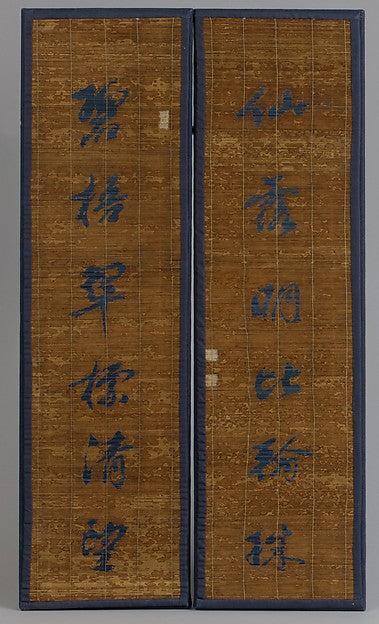 仙露明比珠
碧梧翠標清望